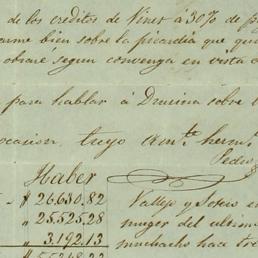 de los creditos de Vinet á 30% de
arme bien sobre la picardia que
obraré segun convenga en vista
para hablar á Drusina sobre
ocasion, tuyo am.te herm.
Pedro
Haber
$ 26.630.82
" 25.525.28
" 3.192.13
Vallejo y Sotero
muger del ultimo
muchacho hace